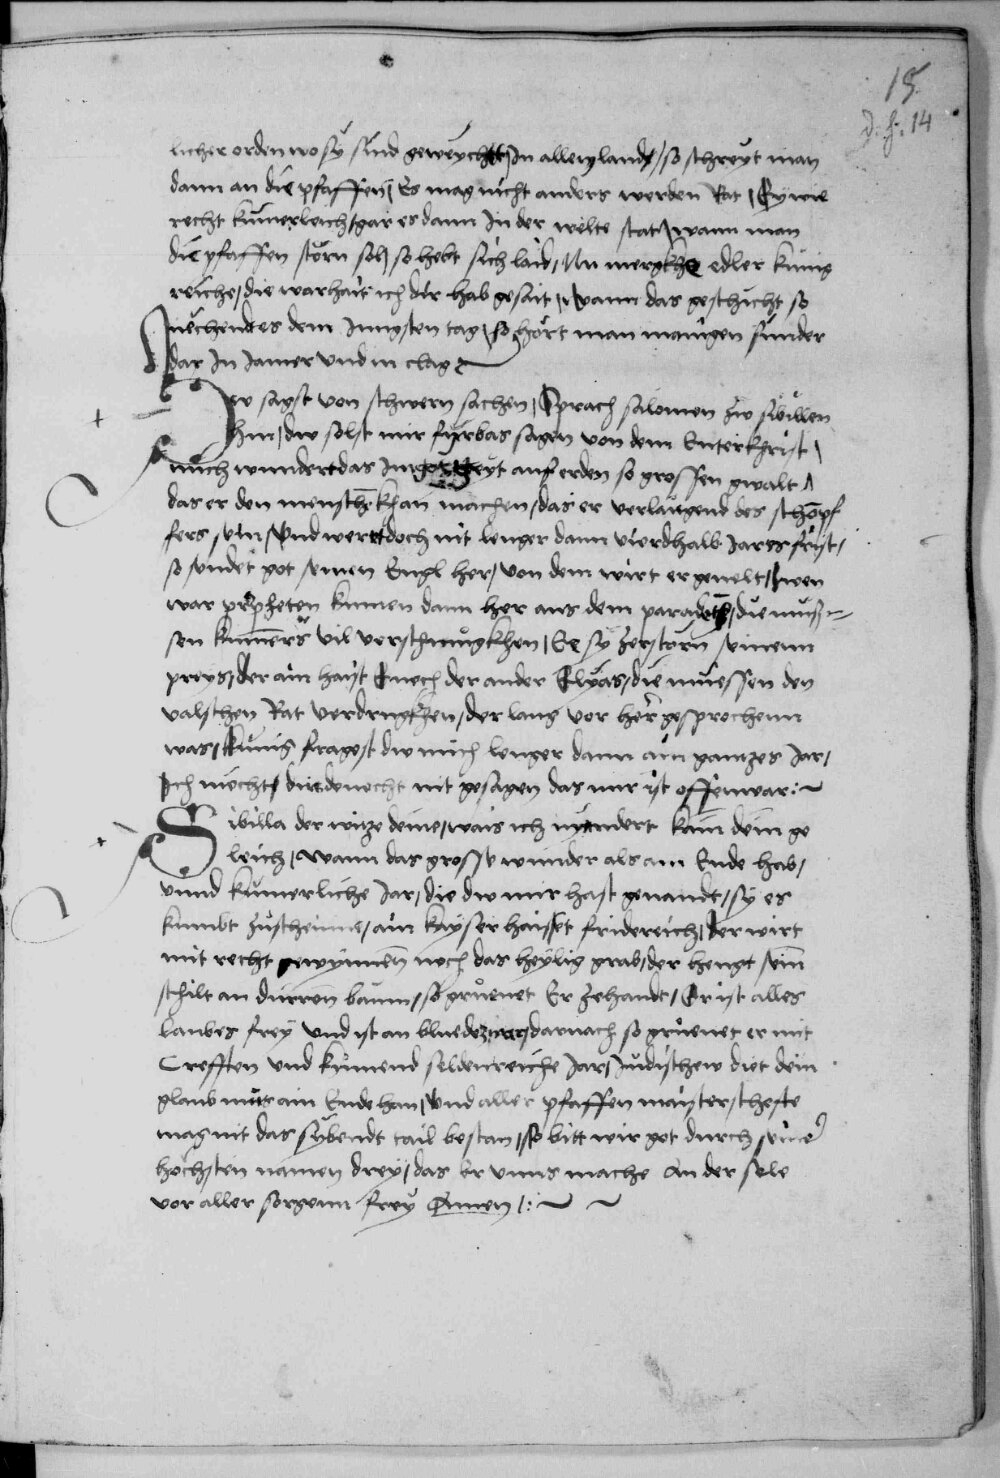 15
D. f. 14
licher orden wo sÿ sind geweÿcht In allen lande / so schreÿt man
dann an die pfaffen / Es mag nicht anders werden Rat / Eÿ wie
recht kumerleich gar es dann In der welte stat / wann man
die pfaffen störn sol / so hebt sich laid / Nu merckhe edler kunig
reiche / die warhait ich dir hab gesait / Wann das geschicht so
nëchendt es dem Jungsten tag / so hört man manigen sunder
dar In Jamer vnd in clag
Dw sagst von schwern sachen / Sprach salomon zw sibillen
hin / dw solst mir fürbas sagen von dem Enterkhrist /
mich wundert das Im got geÿt auf erden so grossen gwalt /
das er den menschē khan machen / das er verlaugend des schöpf
fers sein / vnd wertt doch nit lenger dann vierdhalb Jars frist /
so sendet got seinen Engl her / von dem wirt er geuelt / zwen
war propheten kumen dann her aus dem paradeiß / die muß=
sen kumers vil verschmugkhen / Ee sÿ zerstorn seinenn
preÿs / der ain haist Enoch der ander Elÿas / die muessen den
valschen Rat verdrugkhen / der lang vor her gesprochenn
was / Kunig fragest dw mich lenger dann ain gantzes Jar /
Ich mecht dir dennocht nit gesagen das mir ist offenwar :~
Sibilla der witze deine / wais ich nÿndert kain dein ge
leich / Wann das grosse wunder als ain Ende hab /
vnnd kumerliche Jar / die dw mir hast genandt / sÿ es
kumbt zuscheinne / ain kaÿser haisset fridereich / der wirt
mit recht gewÿnnen noch das heÿlig grab / der hengt sein
schilt an dürren baum / so grüenet Er zehandt / Er ist alles
laubes freÿ vnd ist an bluede / darnach so grüenet er mit
Crefften vnd kumend seldenreiche Jar / Judischew diet dein
glaub mus ain Ende han / vnd aller pfaffen maisterschefte
mag nit das sÿbendt tail bestan / so bitt wir got durch seiner
höchsten namen dreÿ / das er vnns mache An der sele
vor aller sorgenn freÿ Amen /:~ ~